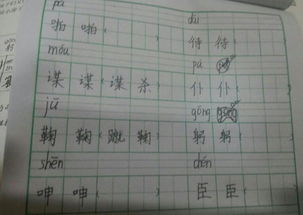 pā dài
啪 啪 待 待
móu pú
谋 谋 谋 杀 仆 仆
jū gōng
鞠 鞠 蹴 鞠 躬 躬
shēn chén
呻 呻 臣 臣